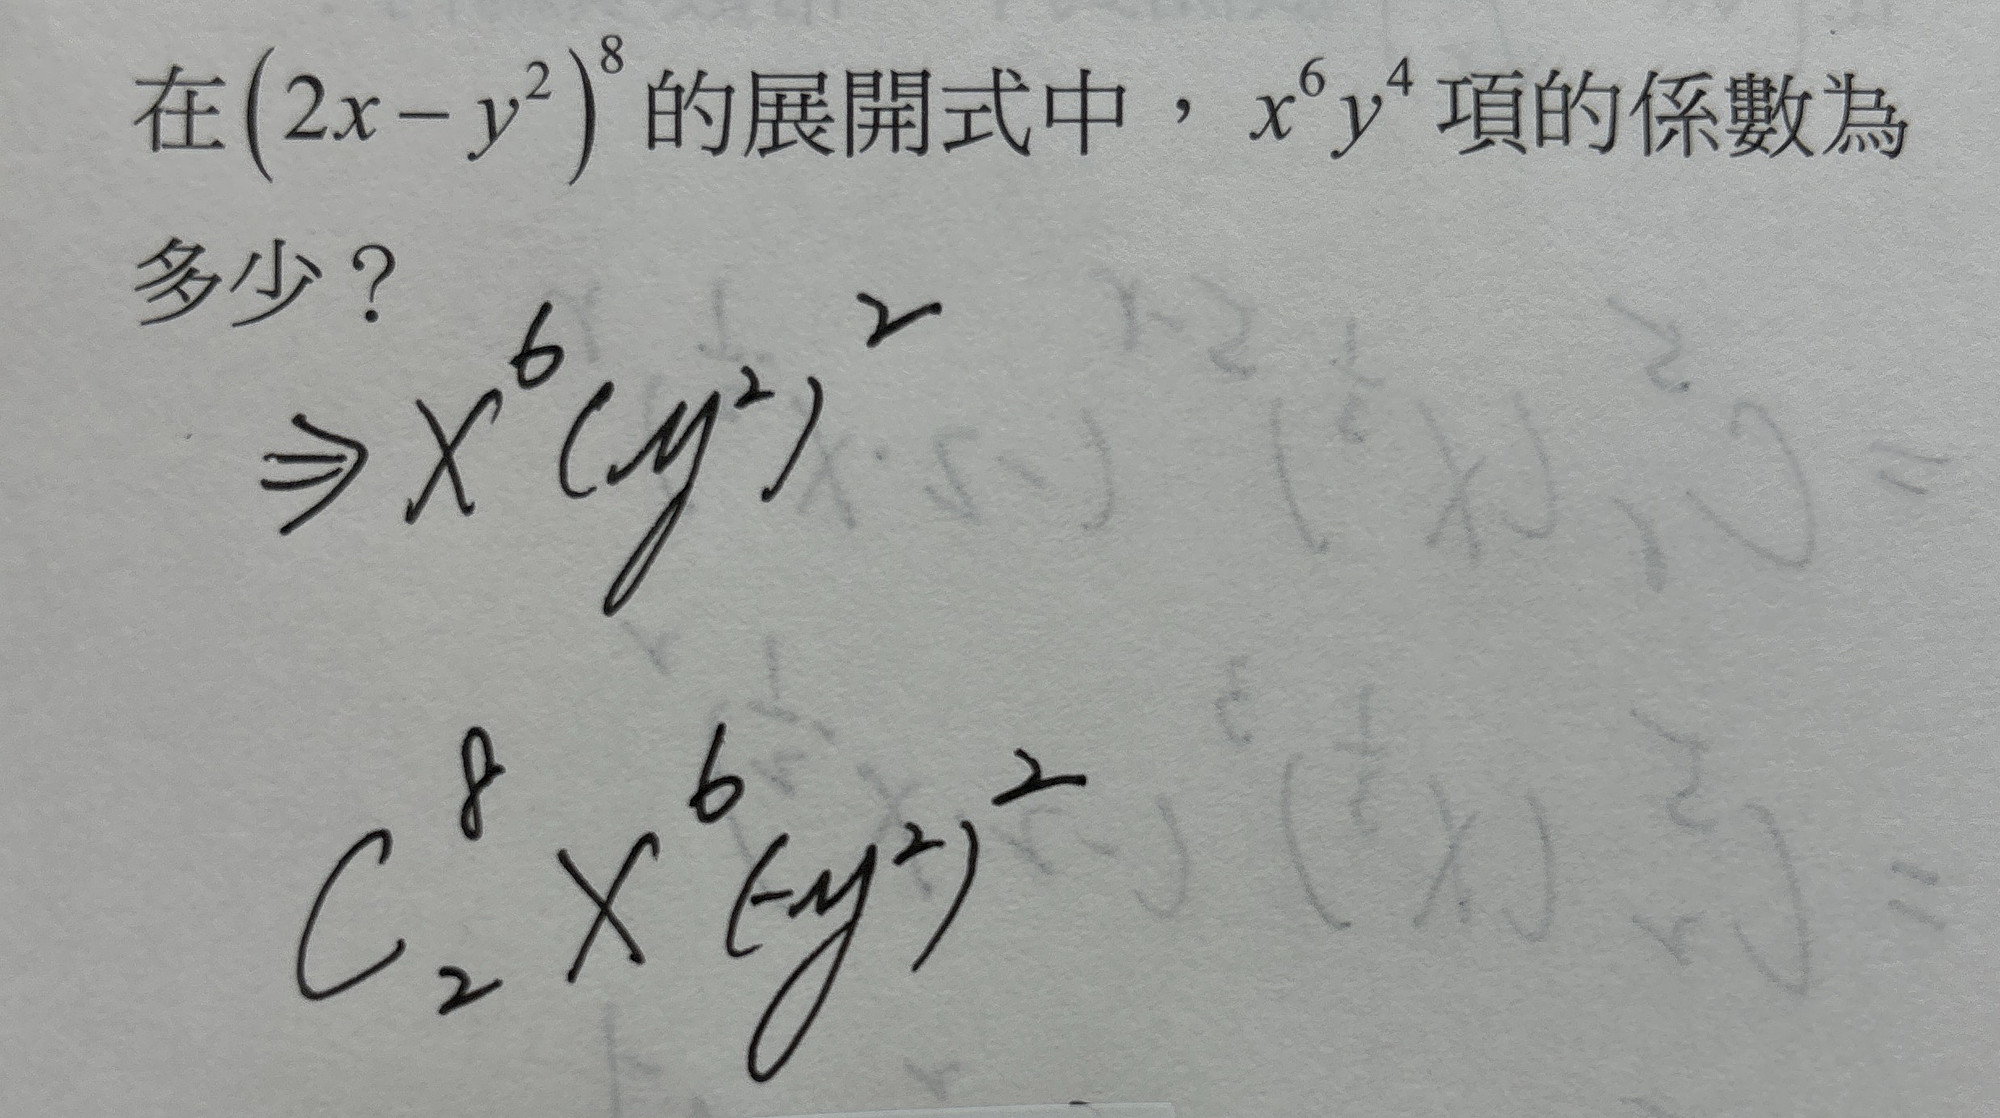 在(2x − y²)⁸的展開式中，x⁶y⁴項的係數為
多少？
⇒ x⁶(y²)²
C⁸₂ x⁶(-y²)²